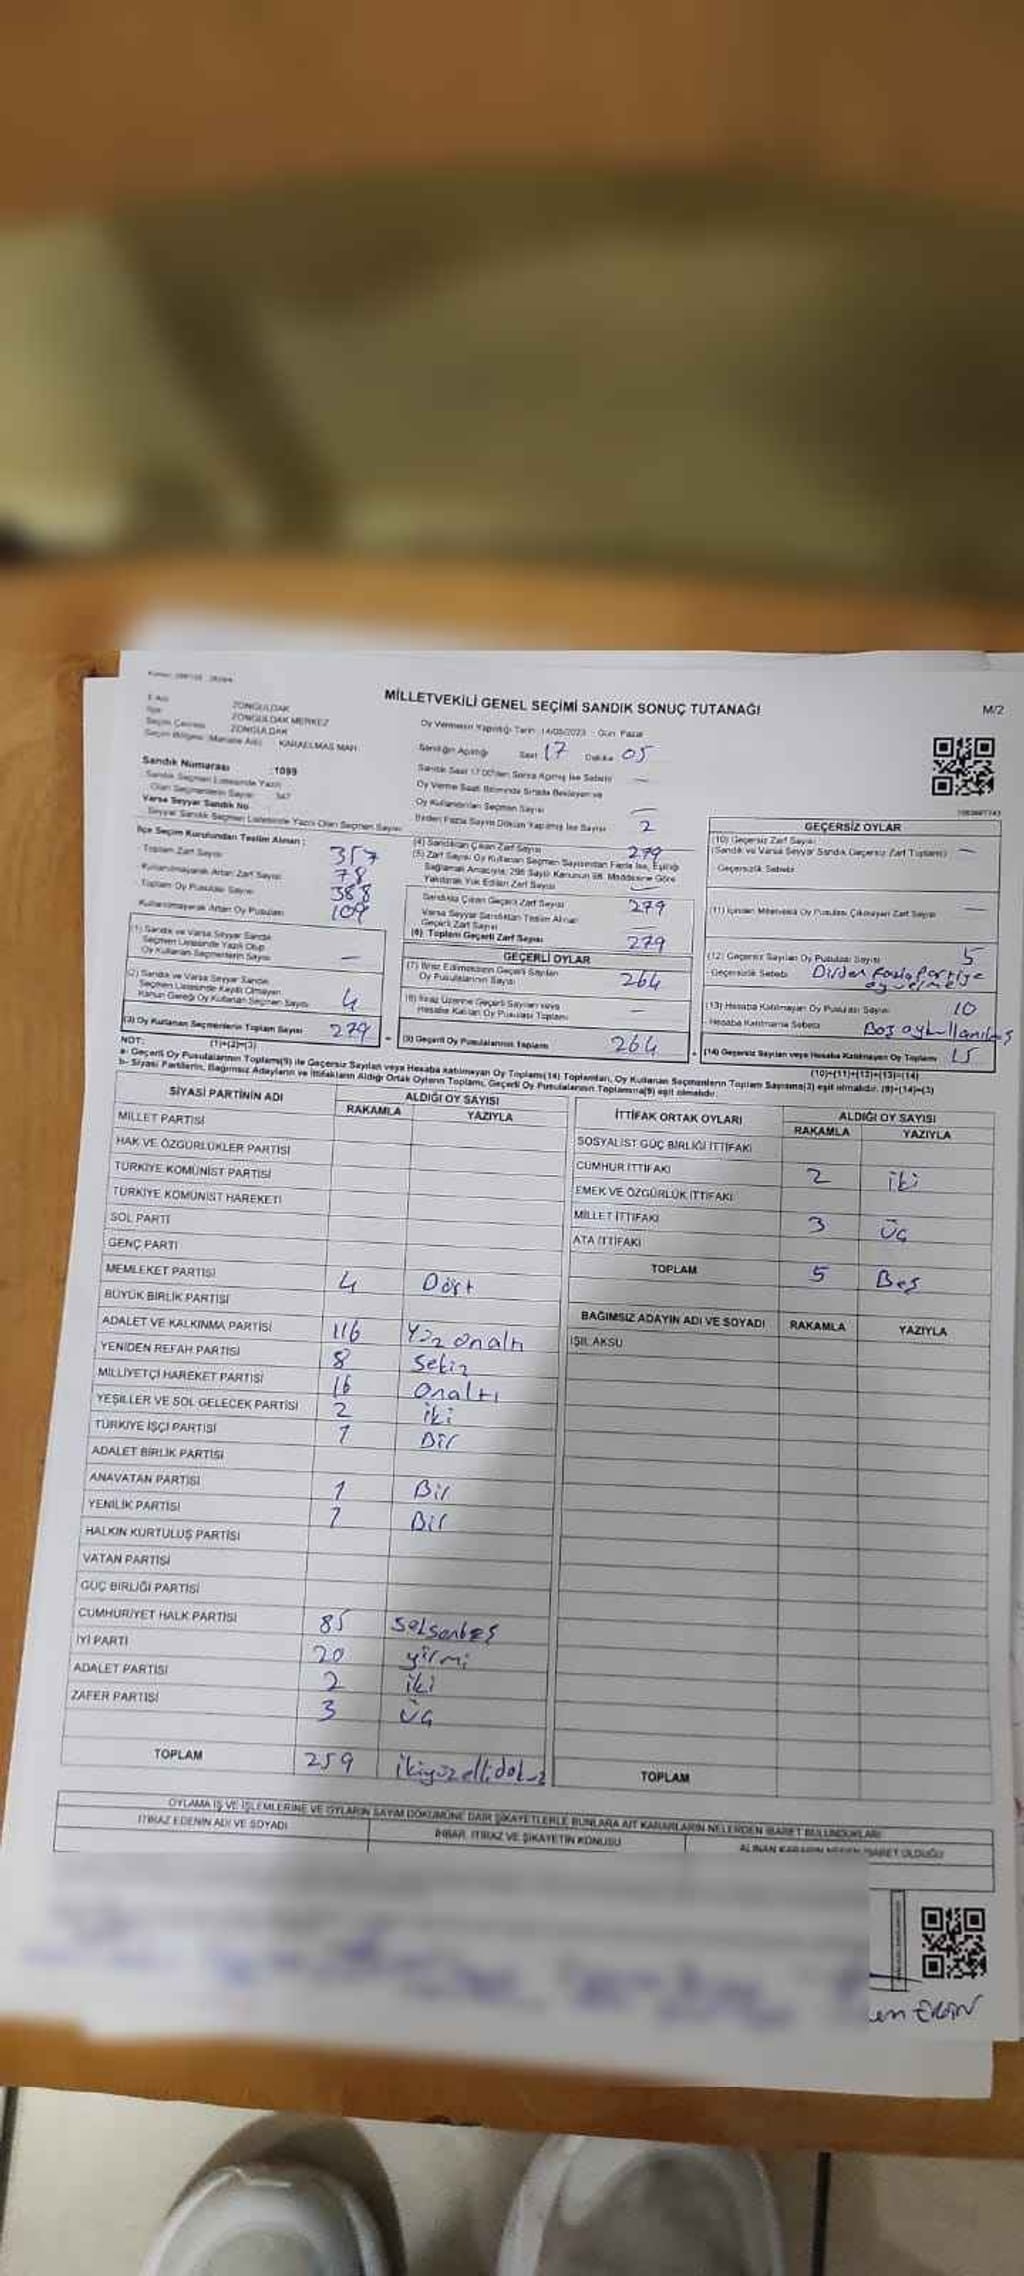 MİLLETVEKİLİ GENEL SEÇİMİ SANDIK SONUÇ TUTANAĞI
M/2
İli ZONGULDAK
İlçe ZONGULDAK MERKEZ
Seçim Çevresi ZONGULDAK
Seçim Bölgesi (Mahalle Adı) KARAELMAS MAH.
Sandık Numarası :1099
Sandık Seçmen Listesinde Yazılı
Olan Seçmenlerin Sayısı 347
Varsa Seyyar Sandık No
Seyyar Sandık Seçmen Listesinde Yazılı Olan Seçmen Sayısı
Oy Vermenin Yapıldığı Tarih 14/05/2023 Gün Pazar
Sandığın Açıldığı Saat 17 Dakika 05
Sandık Saat 17.00'den Sonra Açılmış İse Sebebi —
Oy Verme Saati Bitiminde Sırada Bekleyen ve
Oy Kullandırılan Seçmen Sayısı —
Birden Fazla Sayım Döküm Yapılmış İse Sayısı 2
İlçe Seçim Kurulundan Teslim Alınan :
Toplam Zarf Sayısı 357
Kullanılmayarak Artan Zarf Sayısı 78
Toplam Oy Pusulası Sayısı 388
Kullanılmayarak Artan Oy Pusulası 109
(1) Sandık ve Varsa Seyyar Sandık
Seçmen Listesinde Yazılı Olup
Oy Kullanan Seçmenlerin Sayısı —
(2) Sandık ve Varsa Seyyar Sandık
Seçmen Listesinde Kayıtlı Olmayan
Kanun Gereği Oy Kullanan Seçmen Sayısı 4
(3) Oy Kullanan Seçmenlerin Toplam Sayısı 279
(1)+(2)=(3)
(4) Sandıktan Çıkan Zarf Sayısı 279
(5) Zarf Sayısı Oy Kullanan Seçmen Sayısından Fazla İse, Eşitliği
Sağlamak Amacıyla, 298 Sayılı Kanunun 98. Maddesine Göre
Yakılarak Yok Edilen Zarf Sayısı —
Sandıkta Çıkan Geçerli Zarf Sayısı 279
Varsa Seyyar Sandıktan Teslim Alınan
Geçerli Zarf Sayısı —
(6) Toplam Geçerli Zarf Sayısı 279
GEÇERLİ OYLAR
(7) İtiraz Edilmeksizin Geçerli Sayılan
Oy Pusulalarının Sayısı 264
(8) İtiraz Üzerine Geçerli Sayılan veya
Hesaba Katılan Oy Pusulası Toplamı —
(9) Geçerli Oy Pusulalarının Toplamı 264
GEÇERSİZ OYLAR
(10) Geçersiz Zarf Sayısı
(Sandık ve Varsa Seyyar Sandık Geçersiz Zarf Toplamı) —
Geçersizlik Sebebi
(11) İçinden Milletvekili Oy Pusulası Çıkmayan Zarf Sayısı —
(12) Geçersiz Sayılan Oy Pusulası Sayısı 5
Geçersizlik Sebebi Birden fazla Partiye
oy verilmesi
(13) Hesaba Katılmayan Oy Pusulası Sayısı 10
Hesaba Katılmama Sebebi Boş oy kullanılmış
(14) Geçersiz Sayılan veya Hesaba Katılmayan Oy Toplamı 15
(10)+(11)+(12)+(13)=(14)
NOT:
a- Geçerli Oy Pusulalarının Toplamı(9) ile Geçersiz Sayılan veya Hesaba katılmayan Oy Toplamı(14) Toplamları, Oy Kullanan Seçmenlerin Toplam Sayısına(3) eşit olmalıdır. (9)+(14)=(3)
b- Siyasi Partilerin, Bağımsız Adayların ve İttifakların Aldığı Ortak Oyların Toplamı, Geçerli Oy Pusulalarının Toplamına(9) eşit olmalıdır.
SİYASİ PARTİNİN ADI ALDIĞI OY SAYISI
RAKAMLA YAZIYLA
MİLLET PARTİSİ
HAK VE ÖZGÜRLÜKLER PARTİSİ
TÜRKİYE KOMÜNİST PARTİSİ
TÜRKİYE KOMÜNİST HAREKETİ
SOL PARTİ
GENÇ PARTİ
MEMLEKET PARTİSİ 4 Dört
BÜYÜK BİRLİK PARTİSİ
ADALET VE KALKINMA PARTİSİ 116 Yüz onaltı
YENİDEN REFAH PARTİSİ 8 Sekiz
MİLLİYETÇİ HAREKET PARTİSİ 16 Onaltı
YEŞİLLER VE SOL GELECEK PARTİSİ 2 iki
TÜRKİYE İŞÇİ PARTİSİ 1 Bir
ADALET BİRLİK PARTİSİ
ANAVATAN PARTİSİ 1 Bir
YENİLİK PARTİSİ 1 Bir
HALKIN KURTULUŞ PARTİSİ
VATAN PARTİSİ
GÜÇ BİRLİĞİ PARTİSİ
CUMHURİYET HALK PARTİSİ 85 Seksenbeş
İYİ PARTİ 20 yirmi
ADALET PARTİSİ 2 iki
ZAFER PARTİSİ 3 üç
TOPLAM 259 ikiyüzellidokuz
İTTİFAK ORTAK OYLARI ALDIĞI OY SAYISI
RAKAMLA YAZIYLA
SOSYALİST GÜÇ BİRLİĞİ İTTİFAKI
CUMHUR İTTİFAKI 2 iki
EMEK VE ÖZGÜRLÜK İTTİFAKI
MİLLET İTTİFAKI 3 üç
ATA İTTİFAKI
TOPLAM 5 Beş
BAĞIMSIZ ADAYIN ADI VE SOYADI RAKAMLA YAZIYLA
IŞIL AKSU
TOPLAM
OYLAMA İŞ VE İŞLEMLERİNE VE OYLARIN SAYIM DÖKÜMÜNE DAİR ŞİKAYETLERLE BUNLARA AİT KARARLARIN NELERDEN İBARET BULUNDUKLARI
İTİRAZ EDENİN ADI VE SOYADI İHBAR, İTİRAZ VE ŞİKAYETİN KONUSU ALINAN KARARIN NEDEN İBARET OLDUĞU